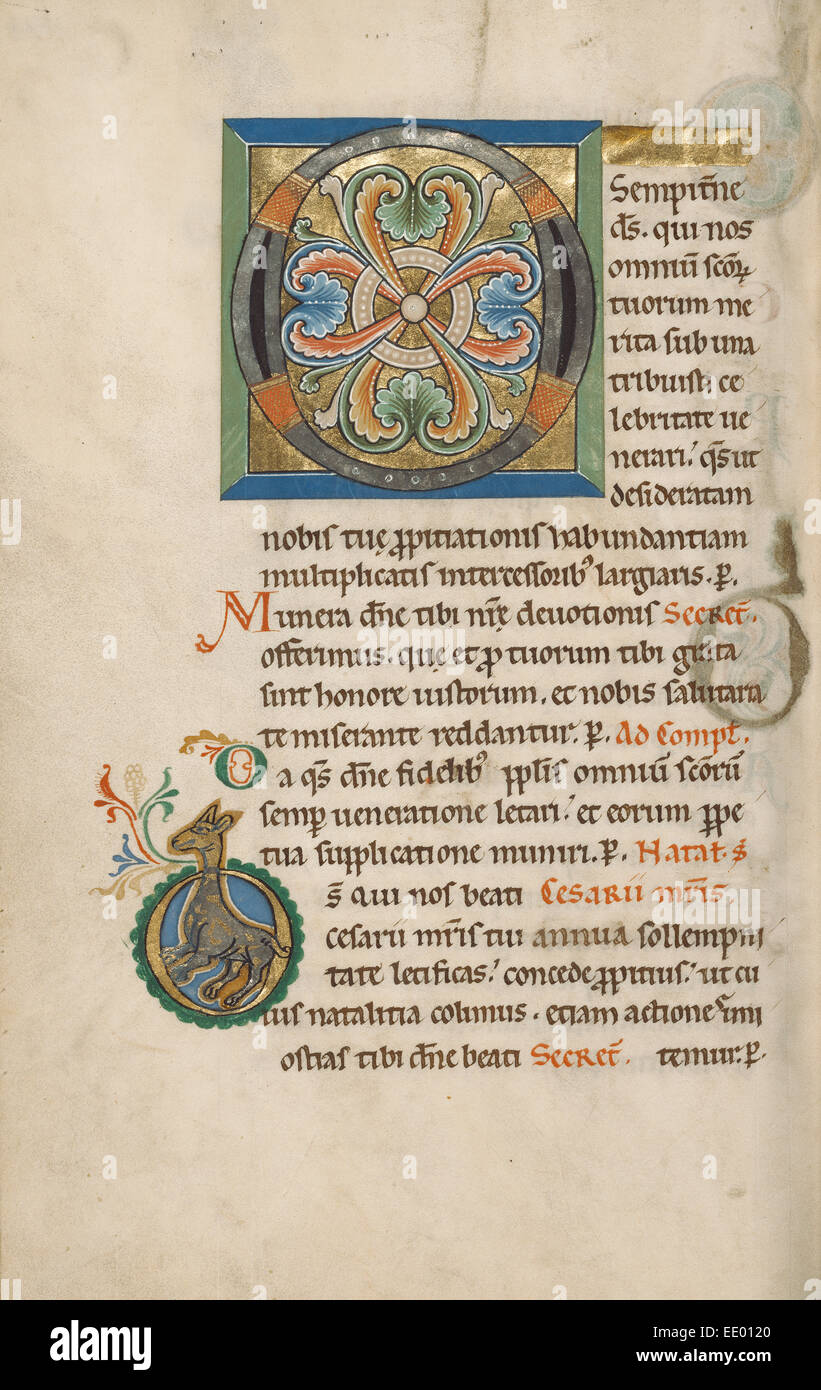 O
Sempit̄ne
d̄s. qui nos
omniū sc̄oꝝ
tuorum me
rita sub una
tribuisti ce
lebritate ue
nerari.' q̄s ut
desideratam
nobis tuę ꝓpitiationis habundantiam
multiplicatis intercessorib; largiaris. p̄.
Munera dn̄e tibi nr̄ę deuotionis Secret̄.
offerimus. quę et ꝓ tuorum tibi grata
sint honore iustorum. et nobis salutaria
te miserante reddantur. p̄. Ad Compl̄.
Da q̄s dn̄e fidelib; pp̄lis omniū sc̄orū
semꝑ ueneratione letari.' et eorum ꝑpe
tua supplicatione muniri. p̄. Natal̄. s̄
D s̄ qui nos beati Cesarii mr̄is.
cesarii mr̄is tui annua sollempni
tate letificas.' concede ꝓpitius.' ut cu
ius natalitia colimus. etiam actiones imi
ostias tibi dn̄e beati Secret̄. temur. p̄.
alamy
alamy
Image ID: EE0120
www.alamy.com